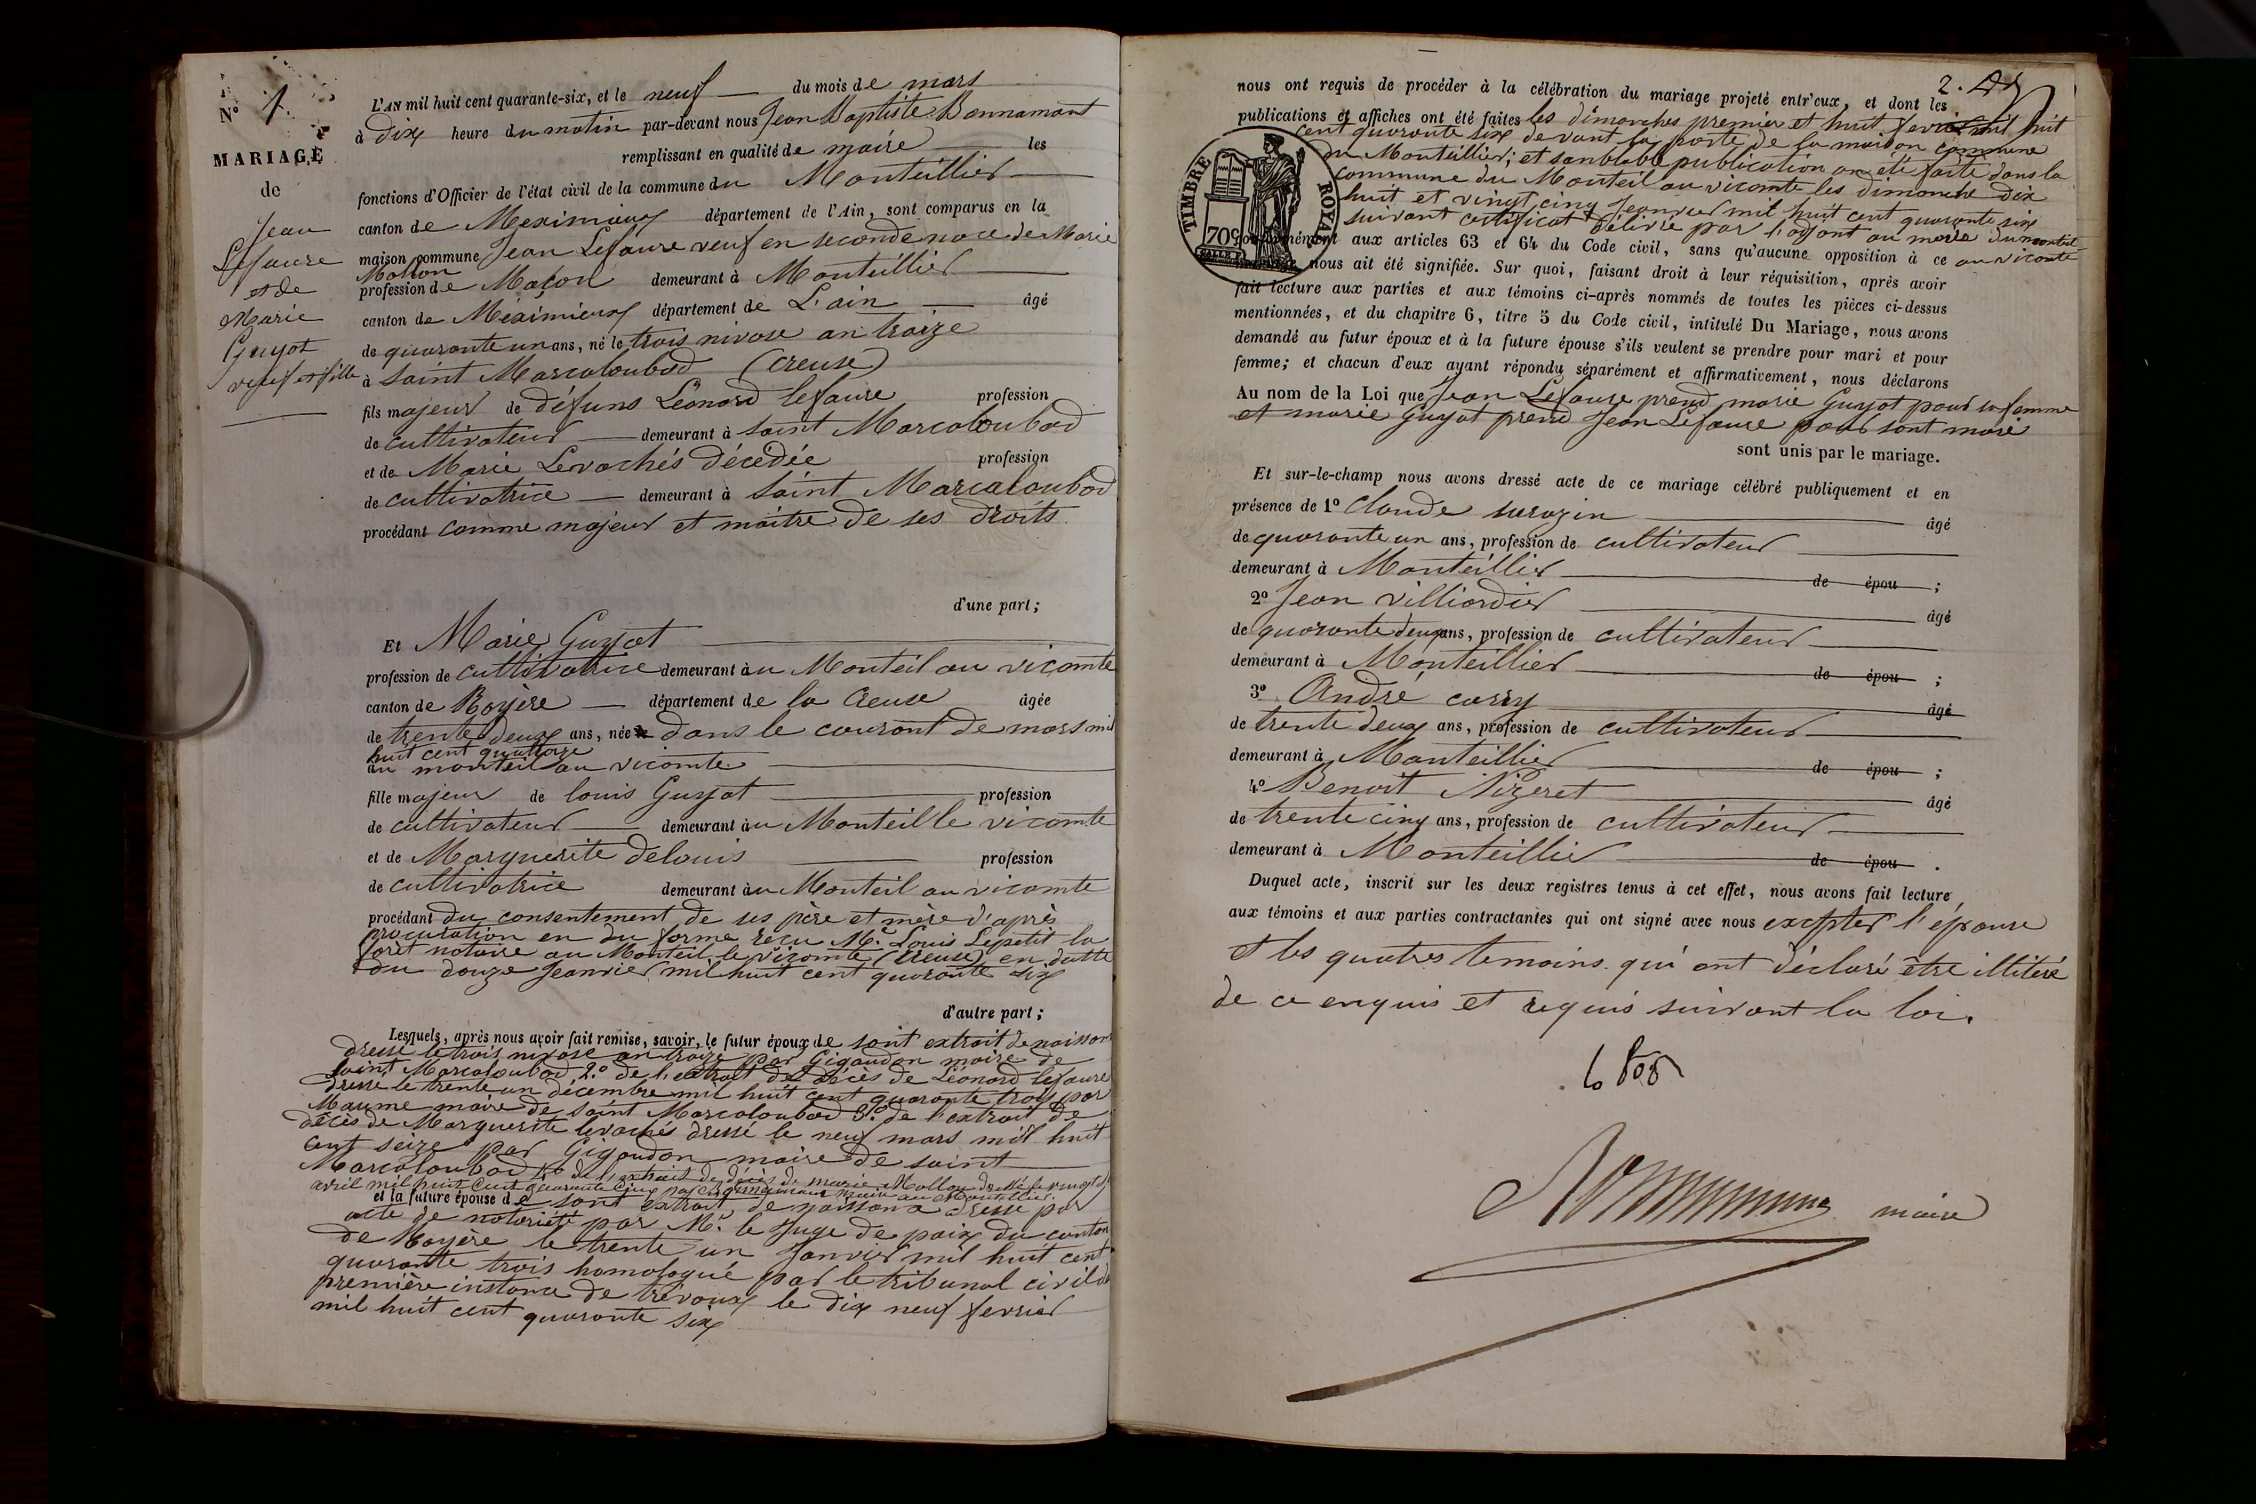 N° 1.
MARIAGE
de
Jean
Lefaure
et de
Marie
Guyot
veuf et fille
L'AN mil huit cent quarante-six, et le neuf du mois de mars
à dix heure du matin par-devant nous Jean Baptiste Bonnamont
remplissant en qualité de mairé les
fonctions d'Officier de l'état civil de la commune du Montéillier
canton de Meximieux département de l'Ain, sont comparus en la
maison commune Jean Lefaure veuf en seconde noce de Marie
Mollon
profession de Maçon demeurant à Montéillier
canton de Meximieux département de L'ain âgé
de quaronte un ans, né le trois nivose an traize
à saint Marcaloubod (creuse)
fils majeur de defuns Léonard lefaure profession
de cultivateur demeurant à saint Marcoloubod
et de Marie Levachés décedée profession
de cultivatrice demeurant à saint Marcaloubod
procédant comme majeur et maitre de ses droits
d'une part;
Et Marie Guyot
profession de cultivatrice demeurant àu Monteil au vicomte
canton de Royère département de la Creuse âgée
de trente deux ans, née dans le couront de mars mil
huit cent quattorze
au monteil au vicomte
fille majeur de louis Guyot profession
de cultivateur demeurant àu Monteil le vicomte
et de Marguerite delouis profession
de cultivatrice demeurant àu Monteil au vicomte
procédant du consentement de ses père et mère d'après
procuration en du forme reçu Me. Louis Lepetit la
forèt notaire au Monteil le vicomte (creuse) en datte
du douze Jeanvier mil huit cent quoronte six
d'autre part;
Lesquels, après nous avoir fait remise, savoir, le futur époux de sont extrait de naisson
dressé le trois nivose an traize par Gigaudon maire de
saint Marcoloubod 2.o de l'extrait de décès de Léonard lefaure
dressé le trente un décembre mil huit cent quaronte trois par
Maume maire de saint Marcoloubod 3.o de l'extrait de
décès de Marguerite levachés dressé le neuf mars mil huit
cent seize par Gigoudon maire de saint
Marcoloubod 4o de l'extrait de décès de marie Mollon dressé le vingt
avril mil huit cent quaronte cinq par maire au Montellier.
et la future épouse de sont extrait de naissance dressé par
acte de notoriété par Mr. le Juge de paix du canton
de Royère le trente un Janvier mil huit cent
quaronte trois homologué par le tribunal civil de
première instance de trévoux le dix neuf fevrier
mil huit cent quaronte six
2.
nous ont requis de procéder à la célébration du mariage projeté entr'eux, et dont les
publications et affiches ont été faites les dimanches premier et huit fevrier mil huit
cent quaronte six devant la porte de la maison commune
du Montéillier; et sanblable publication on été faite dans la
commune du Monteil au vicomte les dimanche dix
huit et vingt cinq Jeanvier mil huit cent quaronte six
suivant certificat délivré par l'adjont au maire du monteil
au vicomte
TIMBRE ROYAL
70c
conformément aux articles 63 et 64 du Code civil, sans qu'aucune opposition à ce
mariage nous ait été signifiée. Sur quoi, faisant droit à leur réquisition, après avoir
fait lecture aux parties et aux témoins ci-après nommés de toutes les pièces ci-dessus
mentionnées, et du chapitre 6, titre 5 du Code civil, intitulé Du Mariage, nous avons
demandé au futur époux et à la future épouse s'ils veulent se prendre pour mari et pour
femme; et chacun d'eux ayant répondu séparément et affirmativement, nous déclarons
Au nom de la Loi que Jean Lefaure prend marie Guyot pour sa femme
et marie Guyot prend Jean Lefaure pour sont mari
sont unis par le mariage.
Et sur-le-champ nous avons dressé acte de ce mariage célébré publiquement et en
présence de 1o Claude surozin âgé
de quaronte un ans, profession de cultivateur
demeurant à Montéillier de épou ;
2o Jean Villiardier âgé
de quoronte deux ans, profession de cultivateur
demeurant à Montéillier de épou ;
3o André carry âgé
de trente deux ans, profession de cultivateur
demeurant à Montéillier de épou ;
4o Benoit Nizeret âgé
de trente cinq ans, profession de cultivateur
demeurant à Montéillier de épou .
Duquel acte, inscrit sur les deux registres tenus à cet effet, nous avons fait lecture
aux témoins et aux parties contractantes qui ont signé avec nous excépter l'épouse
et les quatres temoins qui ont déclaré être illitéré
de ce enquis et requis suivant la loi.
maire